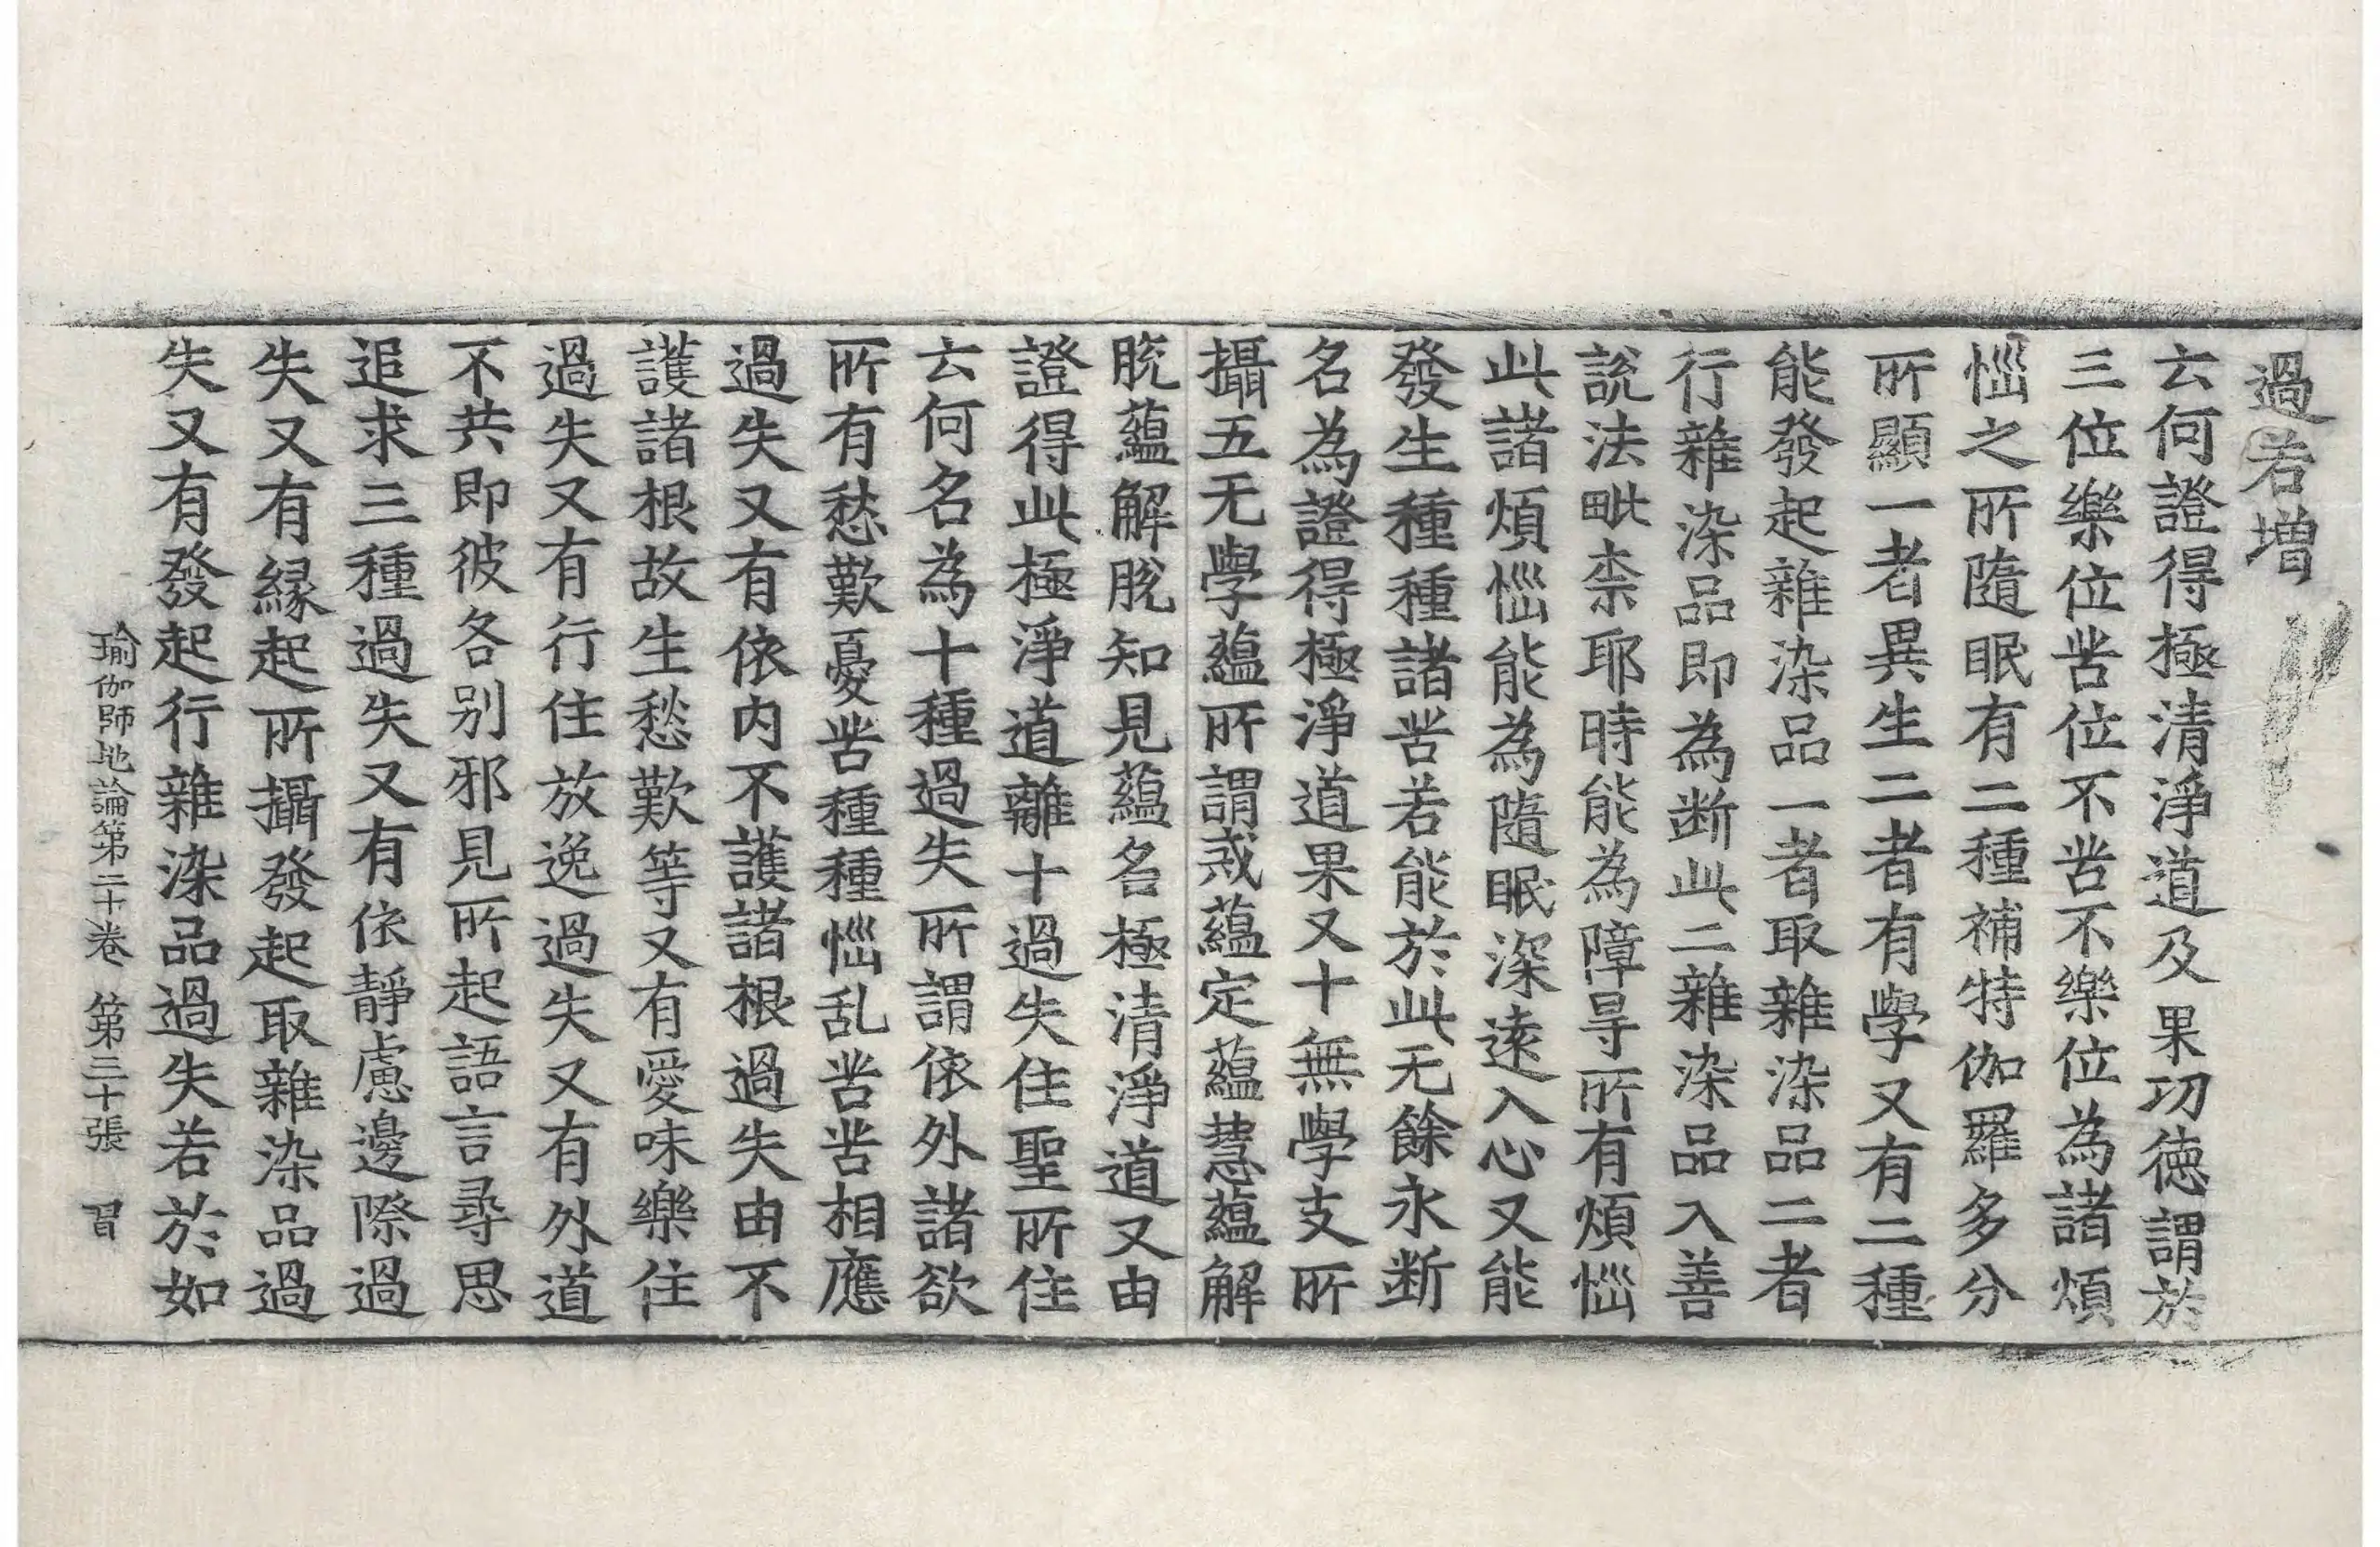 過若增
云何證得極清淨道及果功德謂於
三位樂位苦位不苦不樂位為諸煩
惱之所隨眠有二種補特伽羅多分
所顯一者異生二者有學又有二種
能發起雜染品一者取雜染品二者
行雜染品即為斷此二雜染品入善
說法毗柰耶時能為障㝵所有煩惱
此諸煩惱能為隨眠深遠入心又能
發生種種諸苦若能於此无餘永斷
名為證得極淨道果又十無學支所
攝五无學蘊所謂戒蘊定蘊慧蘊解
脫蘊解脫知見蘊名極清淨道又由
證得此極淨道離十過失住聖所住
云何名為十種過失所謂依外諸欲
所有愁歎憂苦種種惱乱苦苦相應
過失又有依內不護諸根過失由不
護諸根故生愁歎等又有愛味樂住
過失又有行住放逸過失又有外道
不共即彼各別邪見所起語言尋思
追求三種過失又有依靜慮邊際過
失又有緣起所攝發起取雜染品過
失又有發起行雜染品過失若於如
瑜伽師地論第二十卷 第三十張